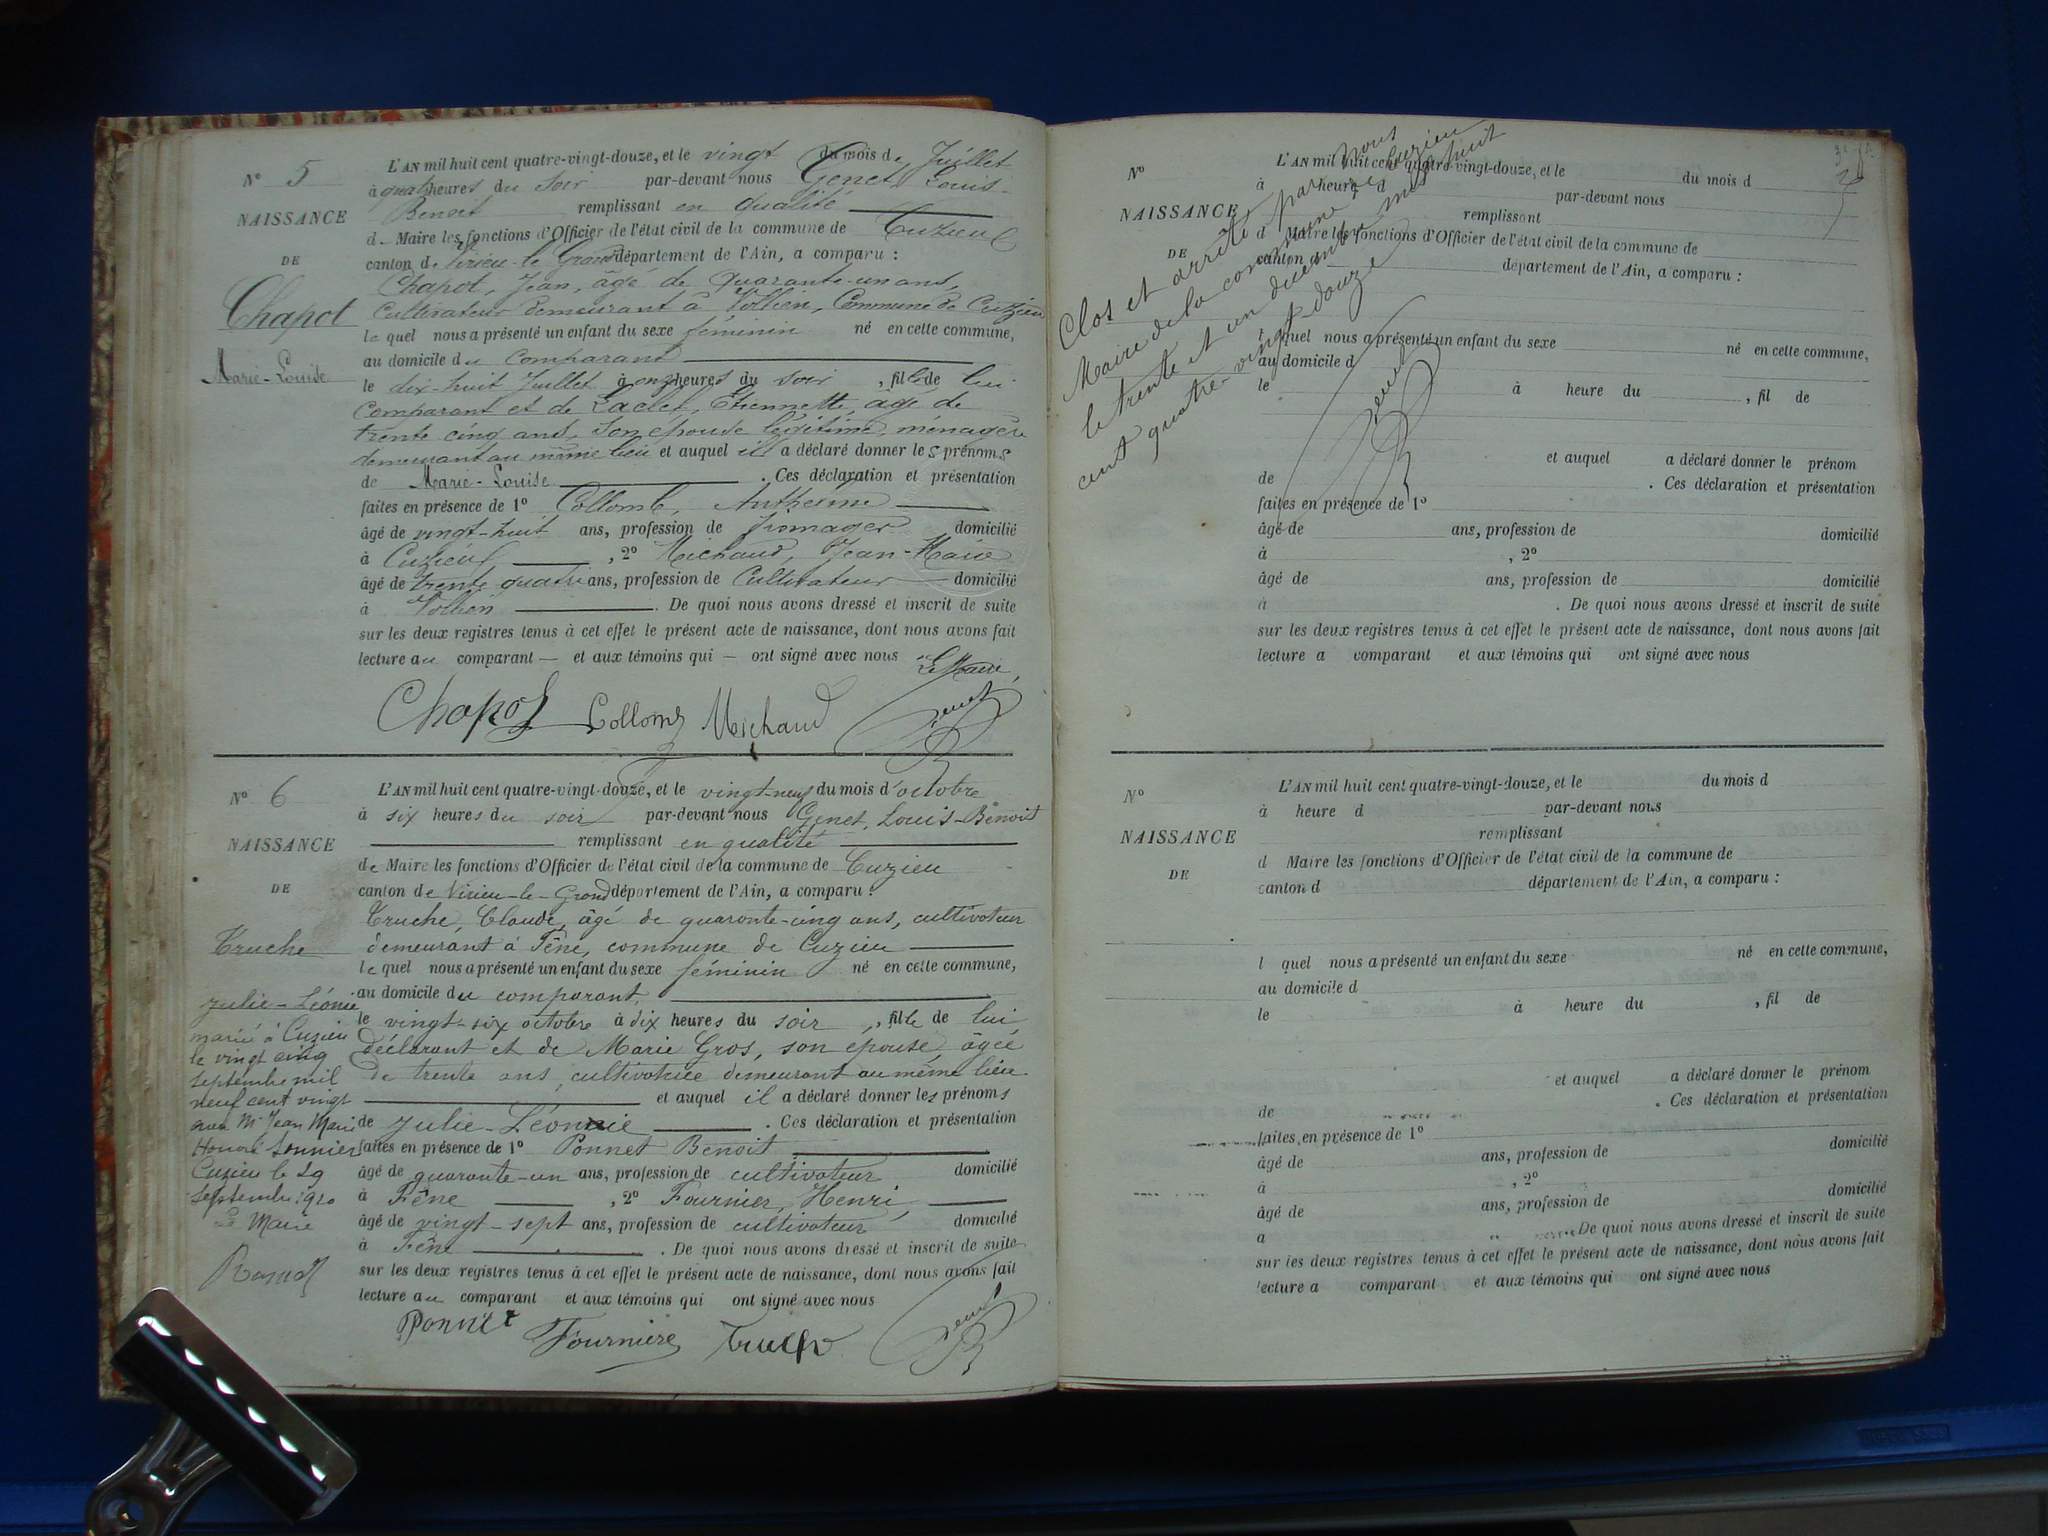 N° 5
NAISSANCE
DE
Chapot
Marie-Louise
L'AN mil huit cent quatre-vingt-douze, et le vingt du mois de Juillet
à quatre heures du soir par-devant nous Genet, Louis-
Benoit remplissant en qualité
d Maire les fonctions d'Officier de l'état civil de la commune de Cuzieu
canton de Virieu-le-Grand département de l'Ain, a comparu :
Chapot, Jean, âgé de quarante-un ans,
cultivateur demeurant à Vollien, Commune de Cuzieu
lequel nous a présenté un enfant du sexe féminin né en cette commune,
au domicile du comparant
le dix-huit Juillet à onze heures du soir, fille de lui
comparant et de Laclet, Etiennette, âgé de
trente cinq ans, son épouse légitime, ménagère
demeurant au même lieu et auquel il a déclaré donner les prénoms
de Marie-Louise. Ces déclaration et présentation
faites en présence de 1° Collomb, Anthelme
âgé de vingt-huit ans, profession de fromager domicilié
à Cuzieu, 2° Michaud, Jean-Marie
âgé de trente quatre ans, profession de Cultivateur domicilié
à Vollien. De quoi nous avons dressé et inscrit de suite
sur les deux registres tenus à cet effet le présent acte de naissance, dont nous avons fait
lecture au comparant — et aux témoins qui — ont signé avec nous
Le Maire,
Chapot Collomb Michaud Genet
N° 6
NAISSANCE
DE
Truche
Julie-Léonie
marié à Cuzieu
le vingt cinq
septembre mil
neuf cent vingt
avec Mr Jean Marie
Honoré Sonnier
Cuzieu le 29
septembre 1920
Le Maire
L'AN mil huit cent quatre-vingt-douze, et le vingt-neuf du mois d'octobre
à six heures du soir par-devant nous Genet, Louis-Benoit
remplissant en qualité
de Maire les fonctions d'Officier de l'état civil de la commune de Cuzieu
canton de Virieu-le-Grand département de l'Ain, a comparu :
Truche, Claude, âgé de quarante-cinq ans, cultivateur
demeurant à Fêne, commune de Cuzieu
lequel nous a présenté un enfant du sexe féminin né en cette commune,
au domicile du comparant,
le vingt-six octobre à dix heures du soir, fille de lui
déclarant et de Marie Gros, son épouse, âgée
de trente ans, cultivatrice demeurant au même lieu
et auquel il a déclaré donner les prénoms
de Julie-Léonie. Ces déclaration et présentation
faites en présence de 1° Ponnet Benoit
âgé de quarante-un ans, profession de cultivateur domicilié
à Fêne, 2° Fournier, Henri,
âgé de vingt-sept ans, profession de cultivateur domicilié
à Fêne. De quoi nous avons dressé et inscrit de suite
sur les deux registres tenus à cet effet le présent acte de naissance, dont nous avons fait
lecture au comparant et aux témoins qui ont signé avec nous
Ponnet Fournier Truche Genet
Clos et arrêté par nous
Maire de la commune de Cuzieu
le trente et un décembre mil huit
cent quatre-vingt-douze
Genet
N°
NAISSANCE
DE
L'AN mil huit cent quatre-vingt-douze, et le du mois d
à heure d par-devant nous
remplissant
d Maire les fonctions d'Officier de l'état civil de la commune de
canton d département de l'Ain, a comparu :
l quel nous a présenté un enfant du sexe né en cette commune,
au domicile d
le à heure du , fil de
et auquel a déclaré donner le prénom
de . Ces déclaration et présentation
faites en présence de 1°
âgé de ans, profession de domicilié
à , 2°
âgé de ans, profession de domicilié
à . De quoi nous avons dressé et inscrit de suite
sur les deux registres tenus à cet effet le présent acte de naissance, dont nous avons fait
lecture a comparant et aux témoins qui ont signé avec nous
N°
NAISSANCE
DE
L'AN mil huit cent quatre-vingt-douze, et le du mois d
à heure d par-devant nous
remplissant
d Maire les fonctions d'Officier de l'état civil de la commune de
canton d département de l'Ain, a comparu :
l quel nous a présenté un enfant du sexe né en cette commune,
au domicile d
le à heure du , fil de
et auquel a déclaré donner le prénom
de . Ces déclaration et présentation
faites en présence de 1°
âgé de ans, profession de domicilié
à , 2°
âgé de ans, profession de domicilié
a De quoi nous avons dressé et inscrit de suite
sur les deux registres tenus à cet effet le présent acte de naissance, dont nous avons fait
lecture a comparant et aux témoins qui ont signé avec nous